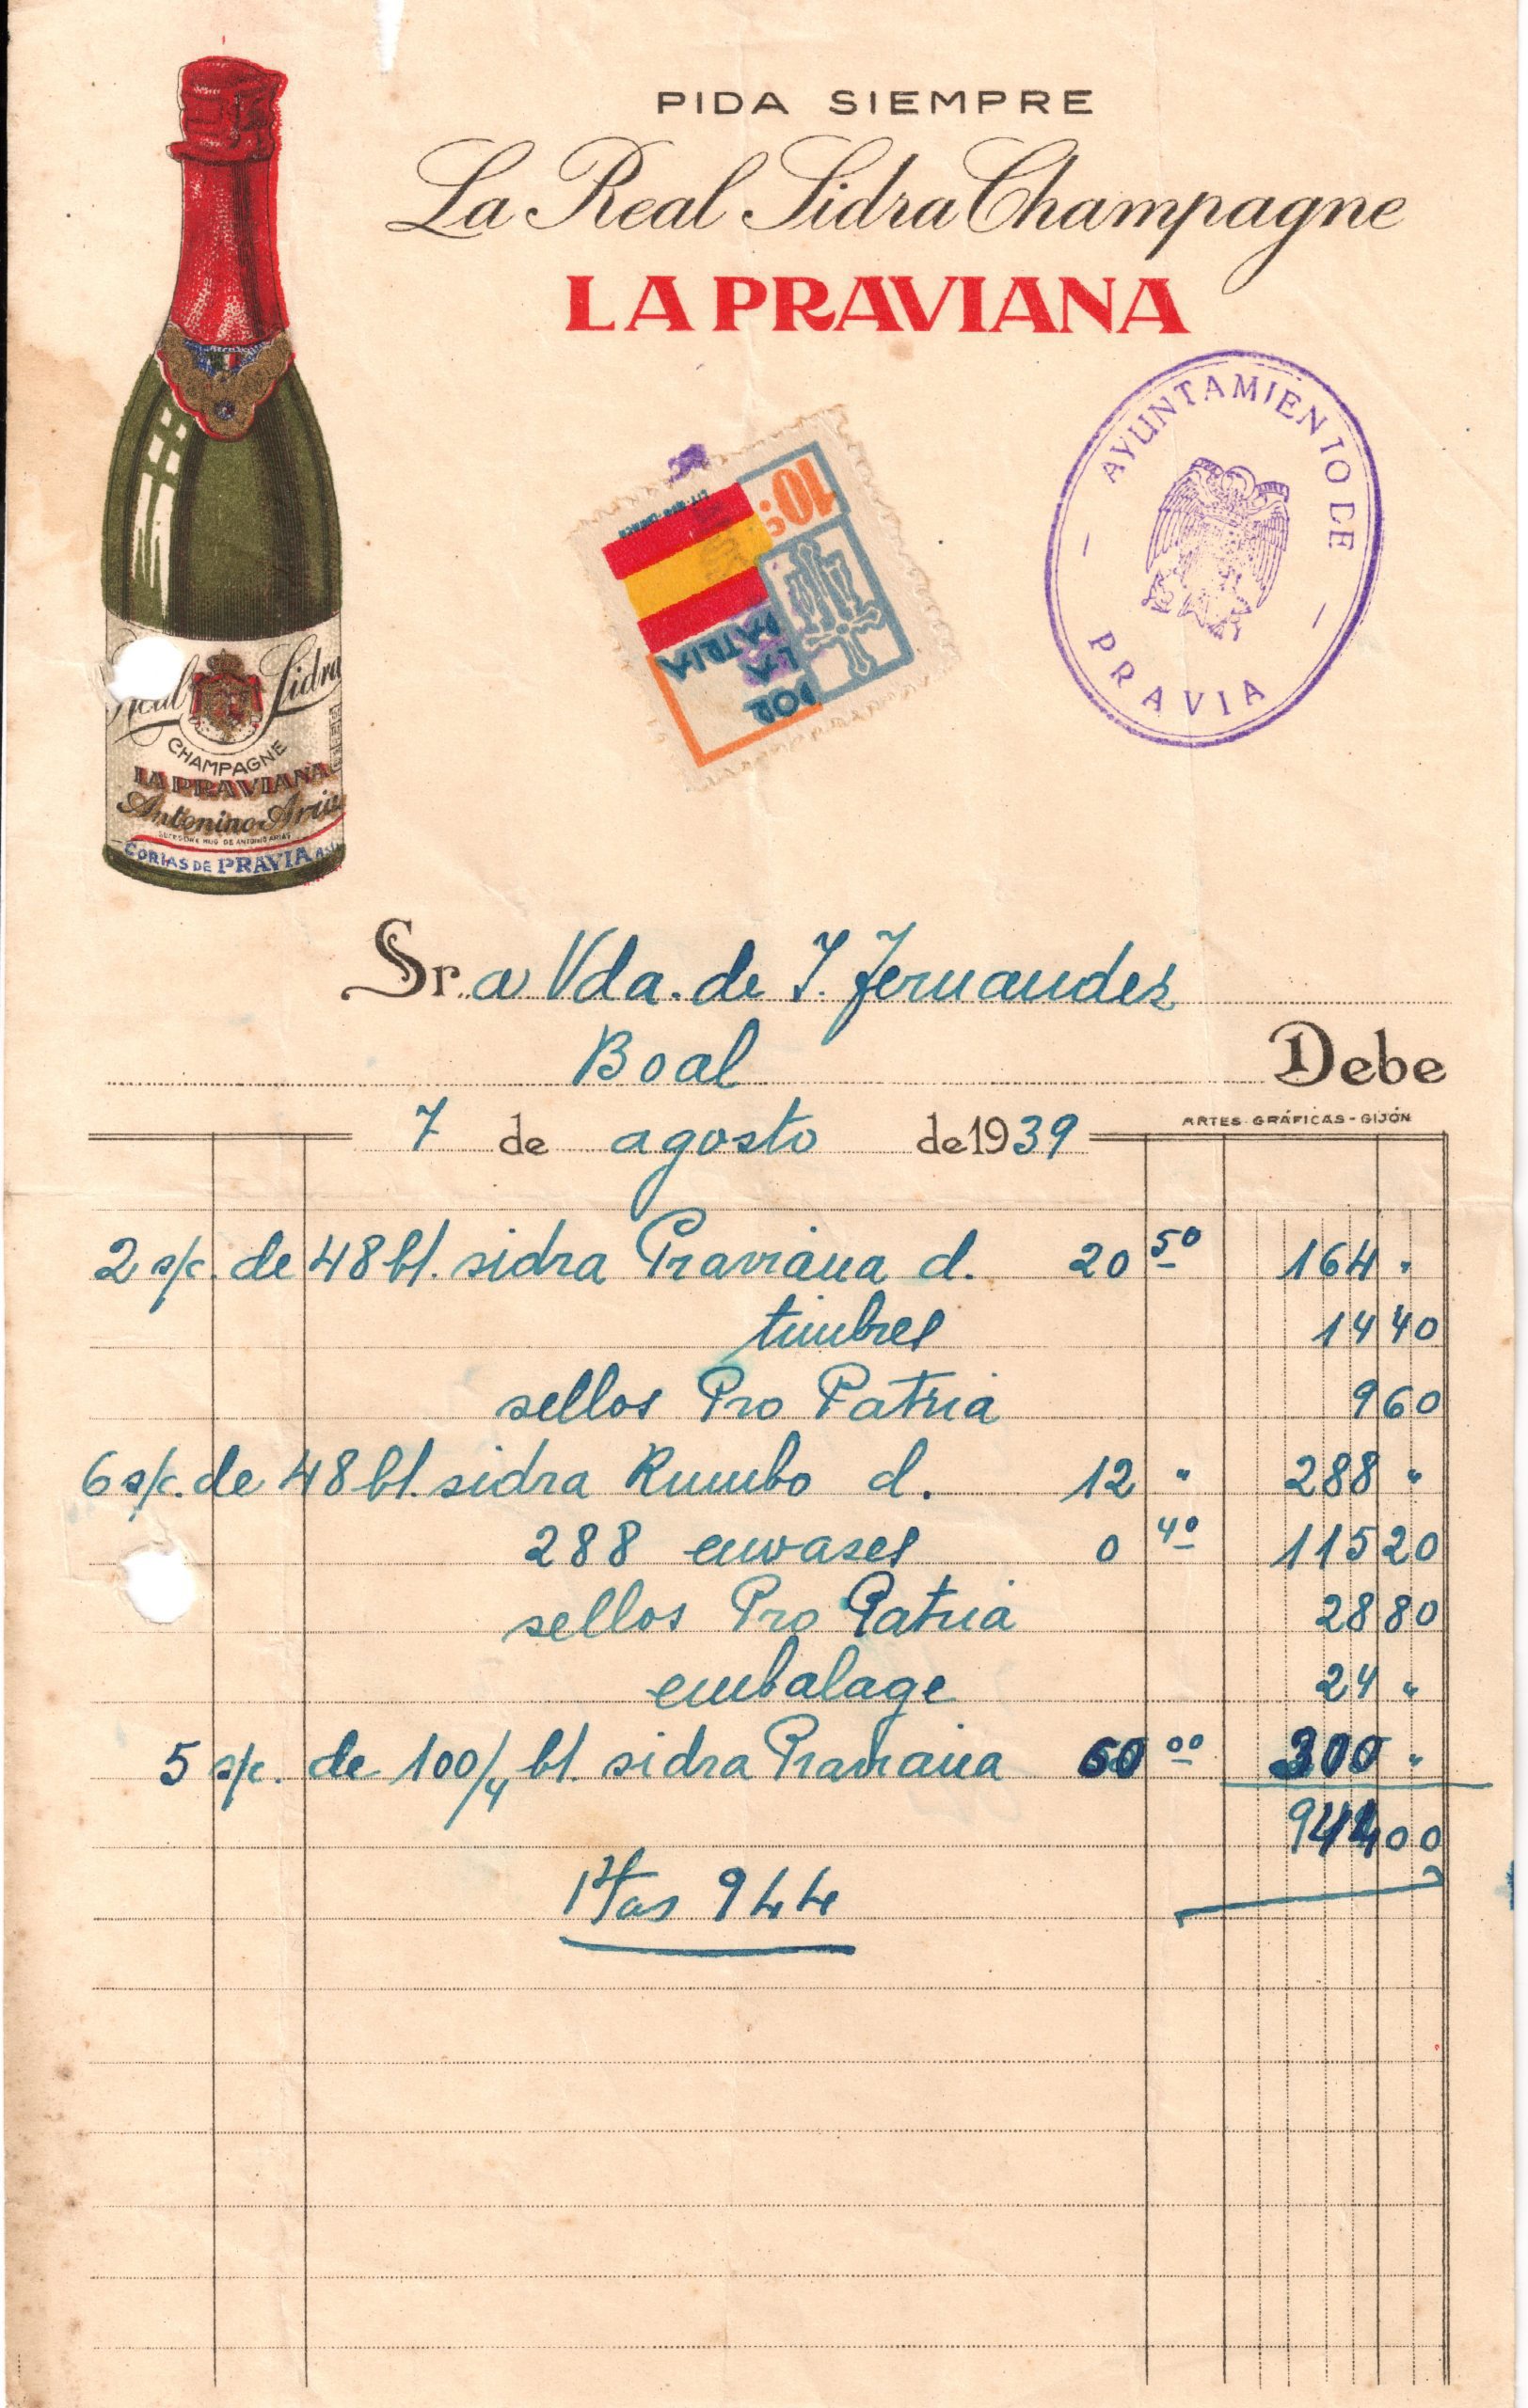 PIDA SIEMPRE
La Real Sidra Champagne
LA PRAVIANA
10 c
POR
LA
PATRIA
AYUNTAMIENTO DE
PRAVIA
Real Sidra
CHAMPAGNE
LA PRAVIANA
Antonino Arias
CORIAS DE PRAVIA
Sr.a Vda. de J. Fernandez
Boal
Debe
ARTES GRÁFICAS-GIJÓN
7 de agosto de 1939
2 s/c. de 48 bl. sidra Praviana d. 20 50 164 "
timbres 14 40
sellos Pro Patria 9 60
6 s/c. de 48 bl. sidra Rumbo d. 12 " 288 "
288 envases 0 40 115 20
sellos Pro Patria 28 80
embalage 24 "
5 s/c. de 100/4 bl. sidra Praviana 60 00 300 "
944 00
Ptas 944